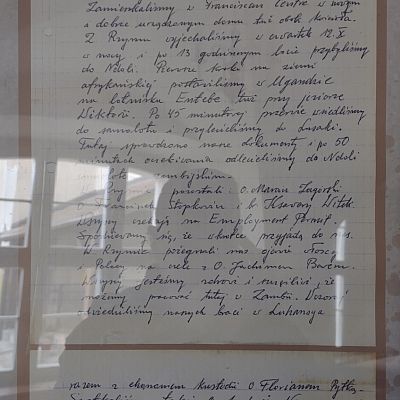 Zamieszkaliśmy w Franciscan Centre w nowym
a dobrze urządzonym domu tuż obok kościoła.
Z Rzymu wyjechaliśmy w czwartek 12.X
w nocy i po 13 godzinnym locie przybyliśmy
do Ndoli. Pierwsze kroki na ziemi
afrykańskiej postawiliśmy w Ugandzie
na lotnisku Entebe tuż przy jeziorze
Wiktorii. Po 45 minutowej przerwie wsiedliśmy
do samolotu i przylecieliśmy do Lusaki.
Tutaj sprawdzono nasze dokumenty i po 50
minutach oczekiwania odlecieliśmy do Ndoli
samolotem zambijskim.
Rzymie pozostali: O. Marian Zagórski
O. Franciszek i br. Ksawery Witek.
Wszyscy czekają na Employment Permit.
Spodziewamy się, że wkrótce przyjadą do nas.
W Rzymie pożegnali nas ojcowie Włosi
i Polacy na czele z O. Joachimem Barem.
Wszyscy jesteśmy zdrowi i szczęśliwi, że
możemy pracować tutaj w Zambii. Wczoraj
odwiedziliśmy naszych braci w Luhansoya
razem z kustodii O. Florianem